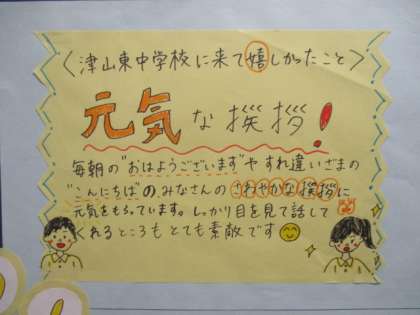 〈津山東中学校に来て嬉しかったこと〉
元気な挨拶!
毎朝の"おはようございます"や すれ違いざまの
"こんにちは"のみなさんの さわやかな挨拶に
元気をもらっています。しっかり目を見て話して
くれるところも とても素敵です